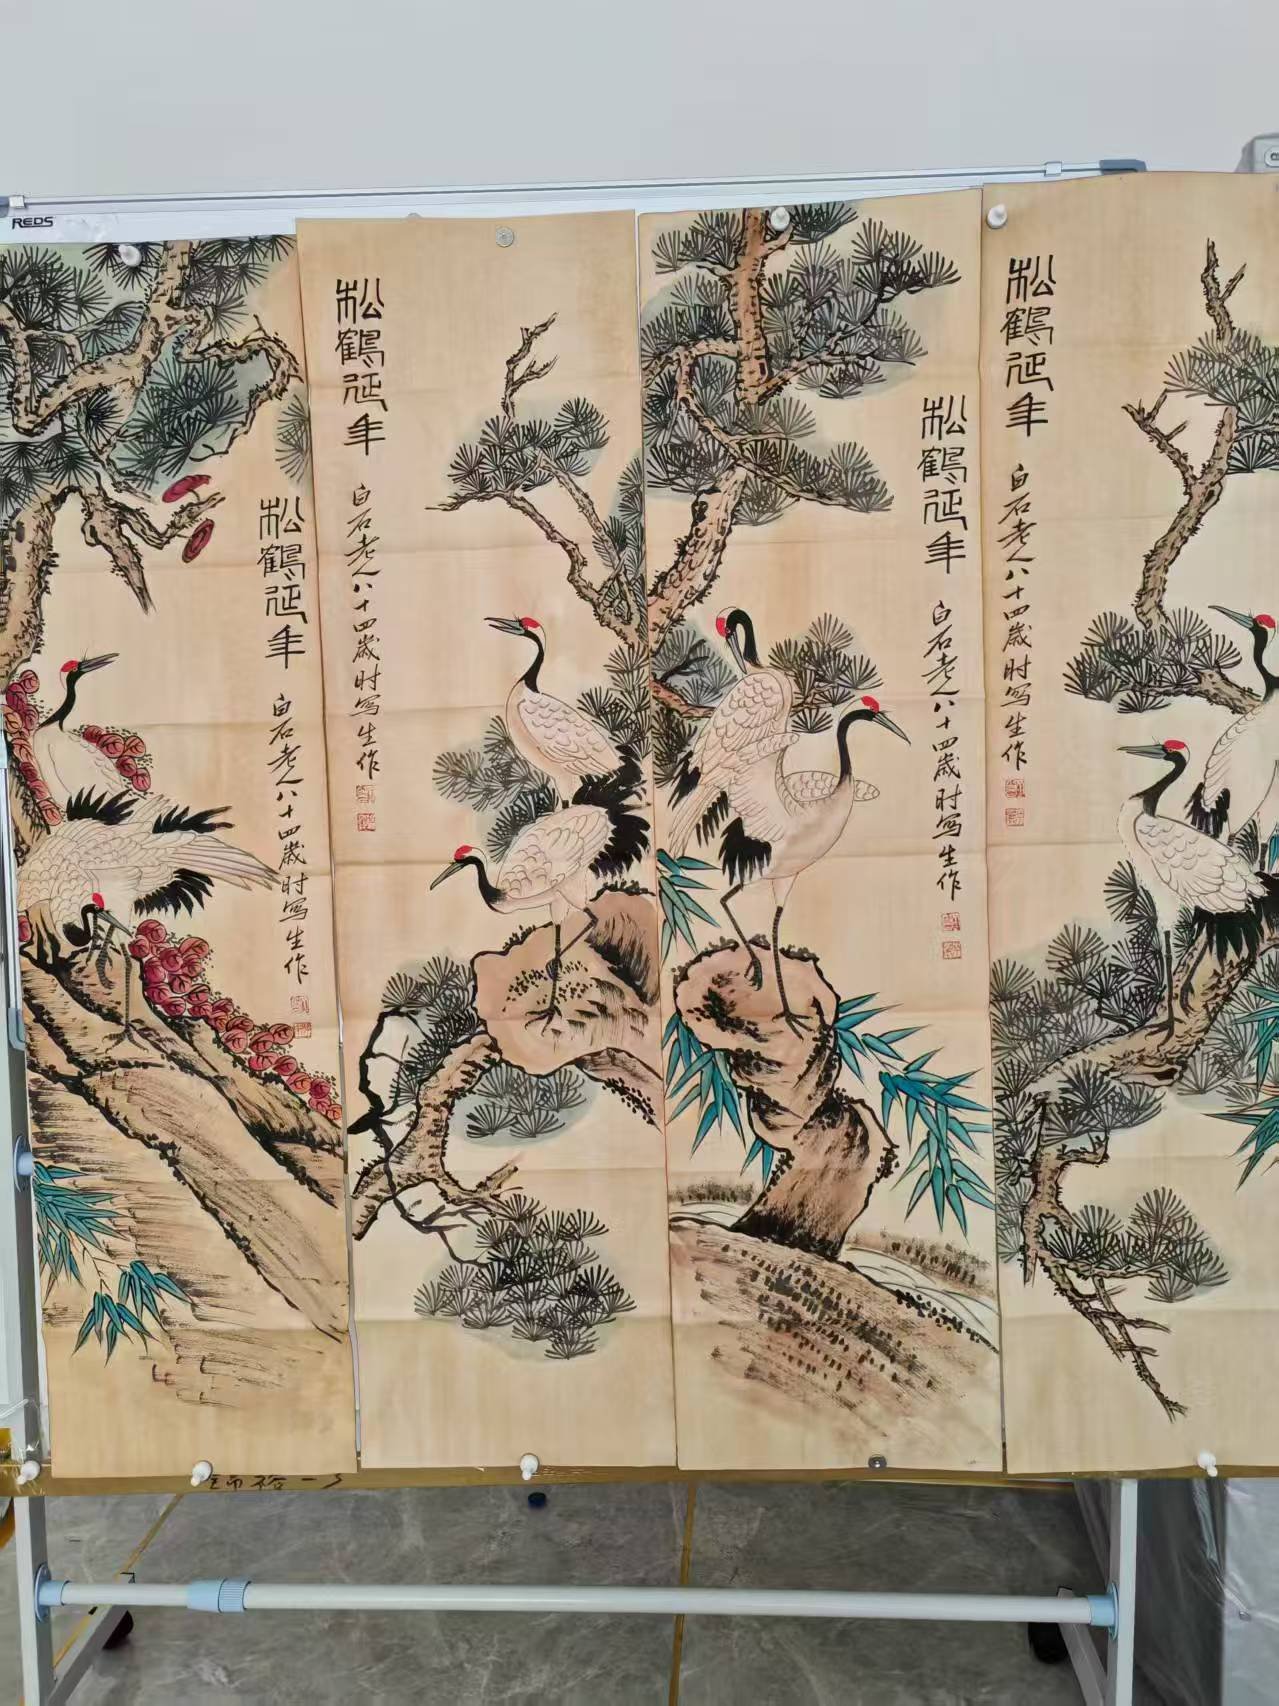 REDS
松鶴延年
白石老人八十四歲时写生作
松鶴延年
白石老人八十四歲时写生作
松鶴延年
白石老人八十四歲时写生作
松鶴延年
白石老人八十四歲时写生作